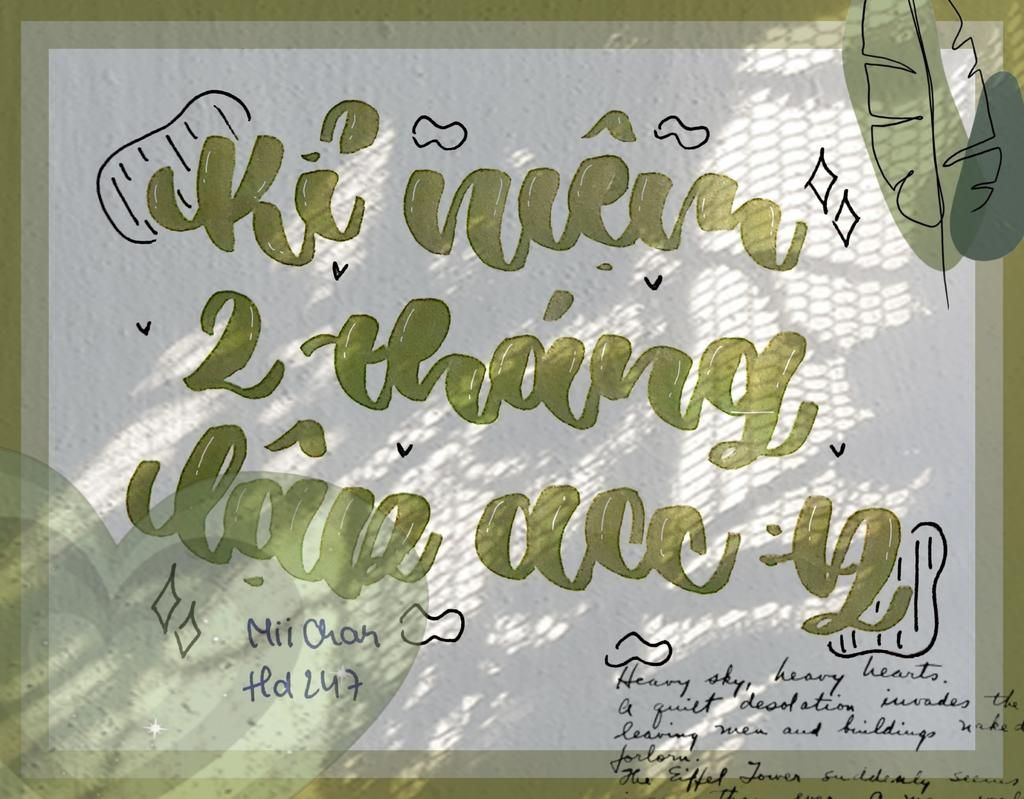 Kỉ niệm
2 tháng
lập acc y2
Mii Chan
Hd 247
Heavy sky, heavy hearts.
A quiet desolation invades the
leaving men and buildings naked
forlorn.
The Eiffel Tower suddenly seems
than ever. A